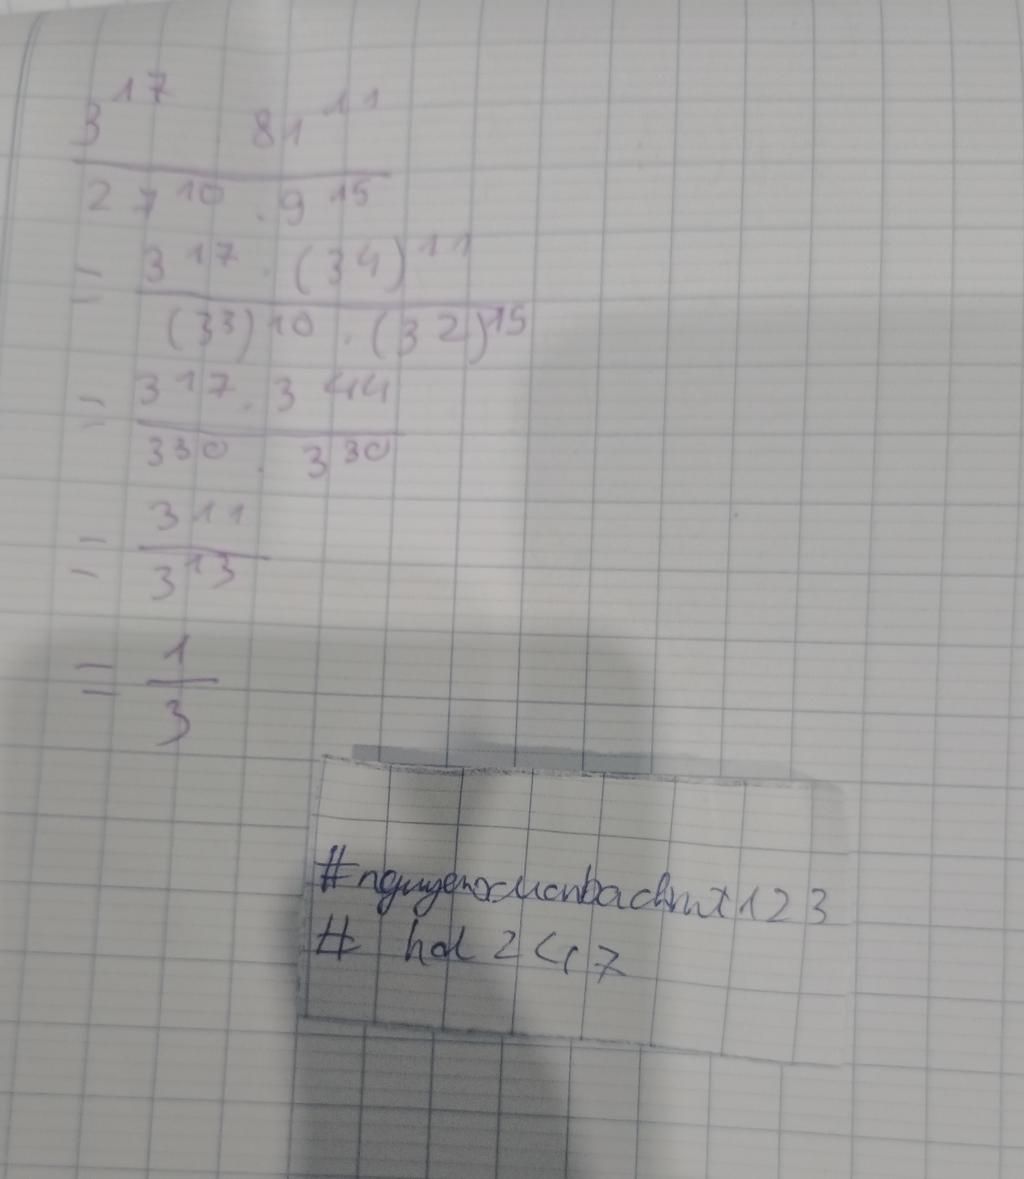 3^17 81^11
27^10 . 9^15
= 3^17 . (3^4)^11
(3^3)^10 . (3^2)^15
= 3^17 . 3^44
3^30 . 3^30
= 3^11
3^13
= 1
3
#nguyenxuanbachmt123
# hd 247